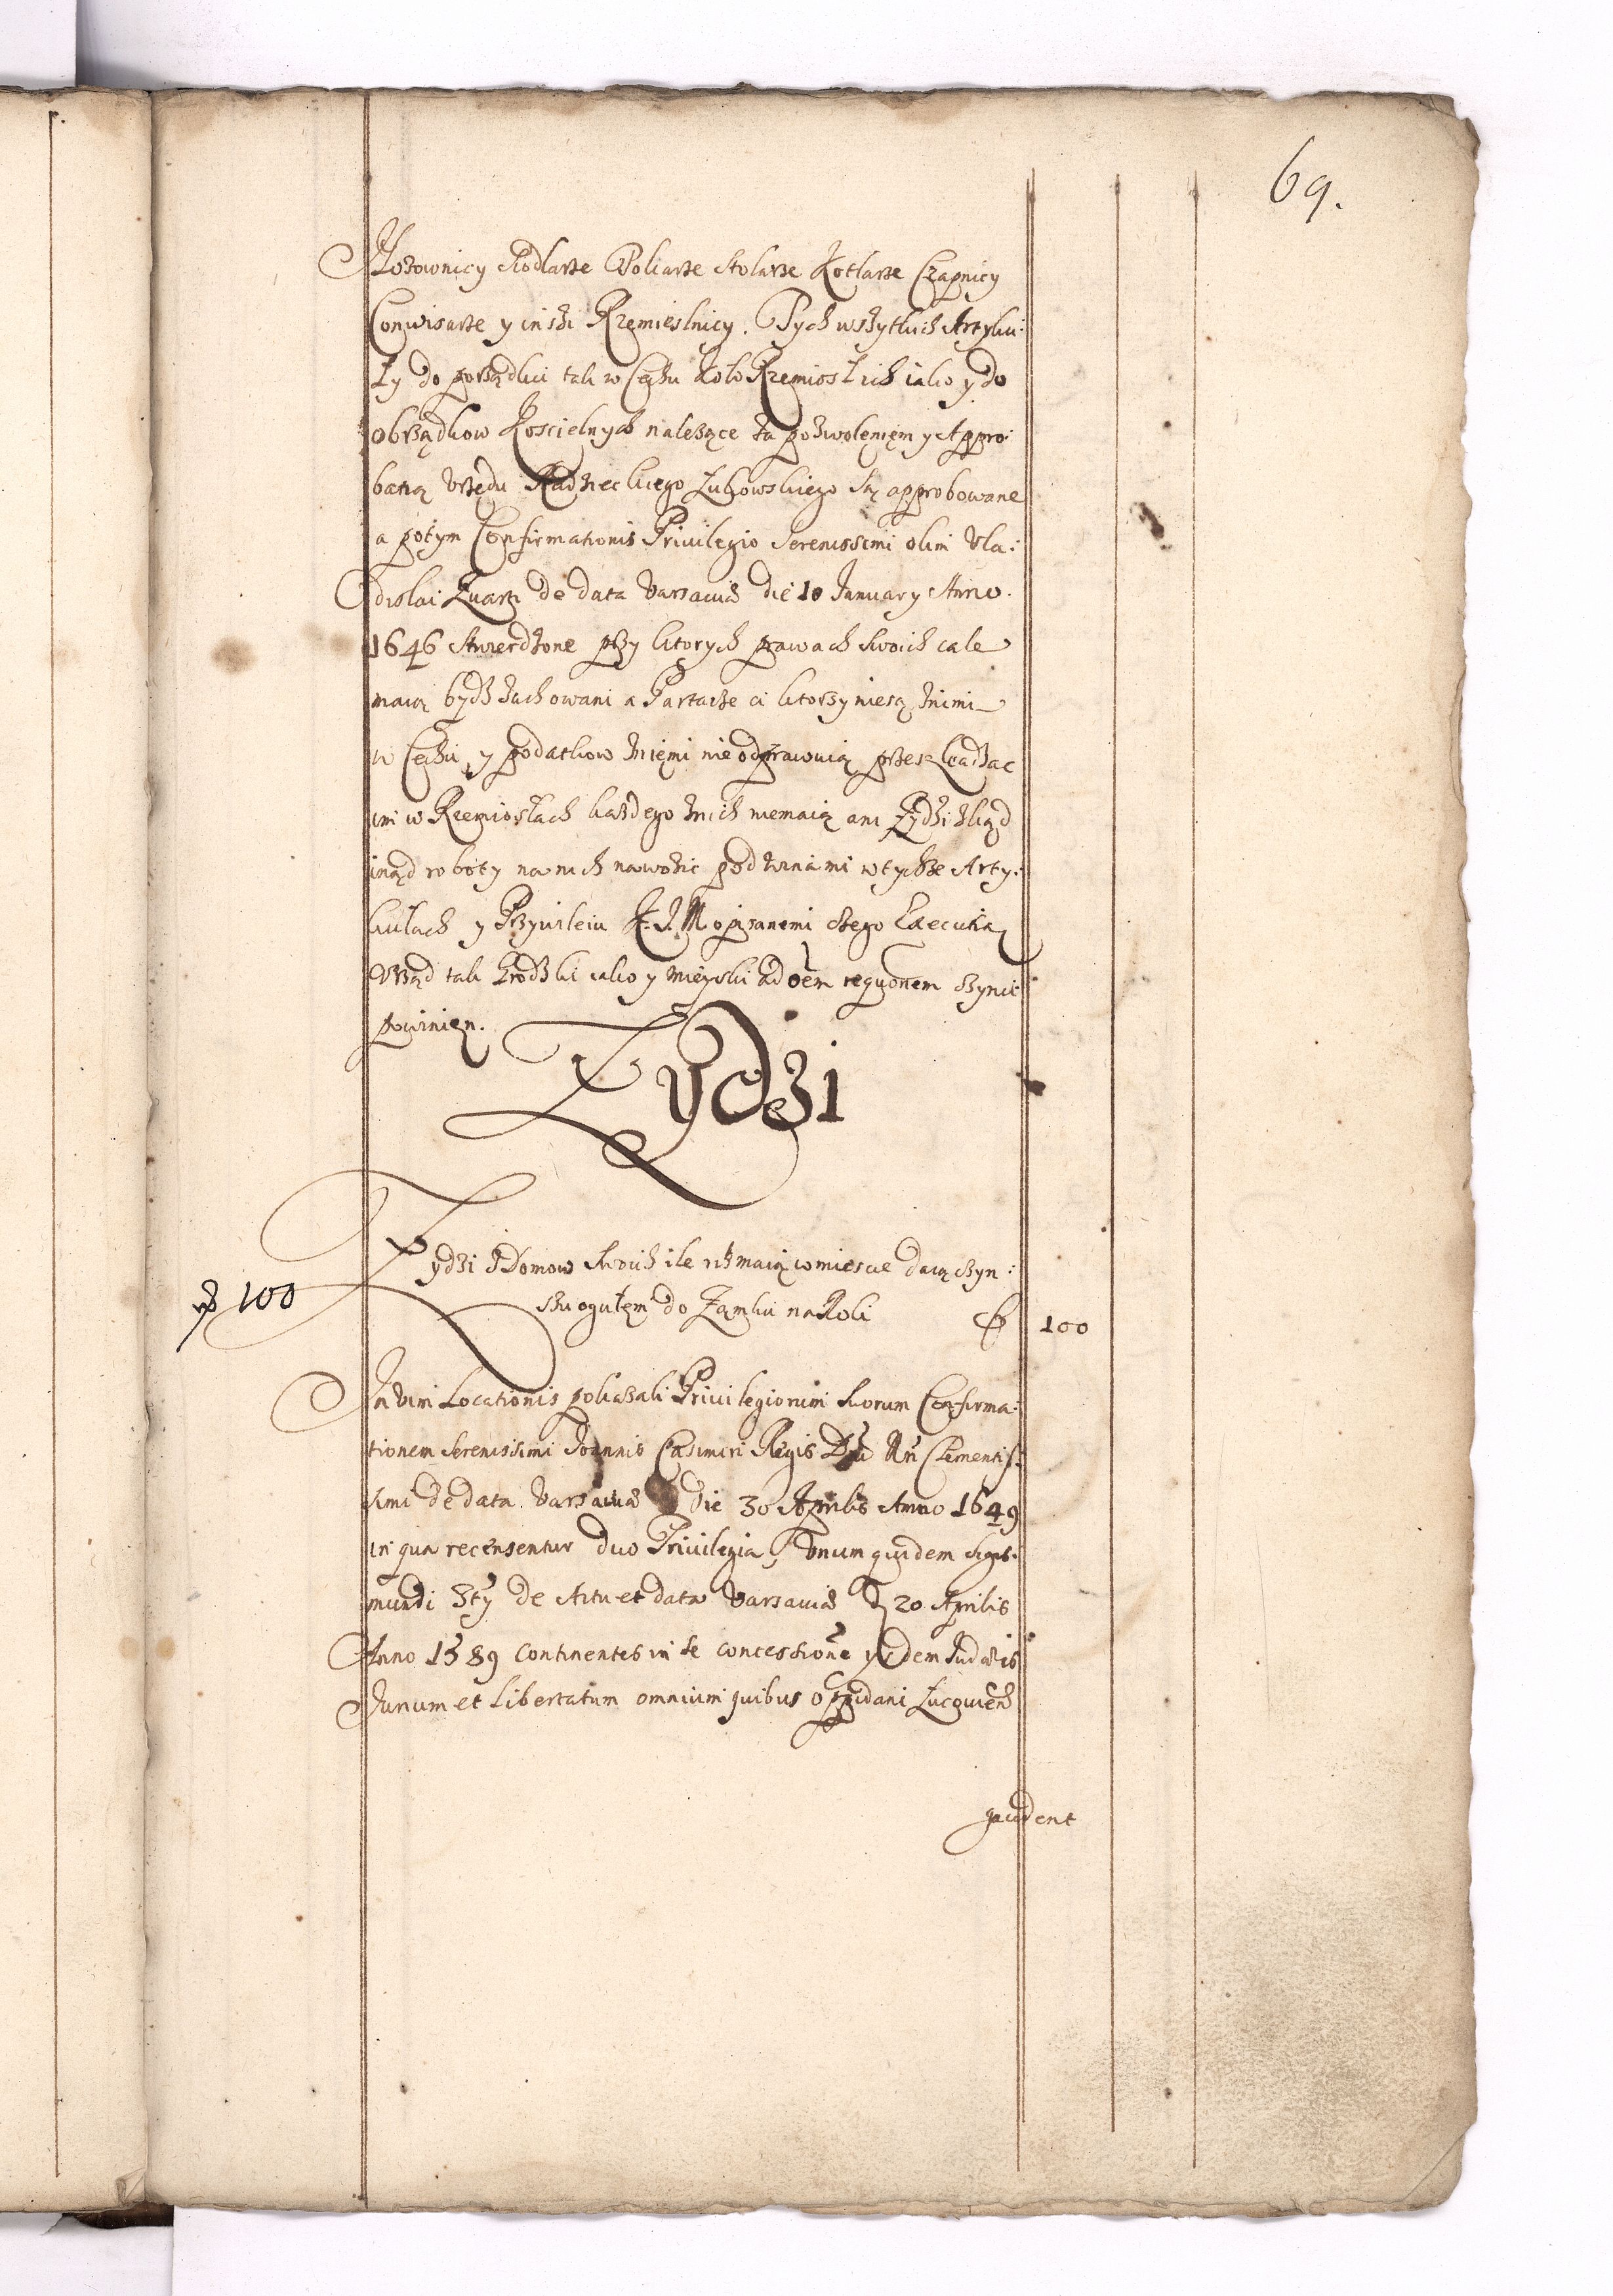 69.
Nożownicy Siodlarze Tokarze Stolarze Kotlarze Czapnicy
Conwisarze y inszi Rzemieslnicy. Tych wszytkich Artyku:
ły do porządku tak w Cechu koło Rzemiosł ich iako y do
obrządkow Koscielnych należące za pozwolenięm y Appro:
batią Urzędu Radzieckiego Łukowskiego są approbowane
a potym Confirmationis Privilegio Serenissimi olim Vla:
dislai Quarti de data Varsaviæ die 10 January Anno.
1646 stwierdzone przy ktorych prawach swoich cale
maią bydz zachowani a Partacze ci ktorzy niesą znimi
w Cechu y podatkow znięmi nie odprawuią przeszkadzac
im w Rzemiosłach każdego znich niemaią ani Zydzi zkąd
inąd roboty na nich nawozic pod winami wtychże Arty:
kułach y Przywileiu K. J. M opisanemi czego Executią
Urząd tak Grodzki iako y Mieyski ad oem reqvonem czynic
powinięn.
Zydzi
Zydzi z Domow swoich ile ich maią wmiescie daią czyn:
szu ogułęm do Zamku na Rok fl 100
fl 100
In vim Locationis pokazali Privilegiorum suorum Confirma:
tionem Serenissimi Joannis Casimiri Regis Dni Nri Clementis:
simi de data Varsaviæ die 30 Aprilis Anno 1649
in qua recensentur duo Privilegia, Unum quidem Sigis:
mundi 3ty de Actu et data Varsaviæ D 20 Aprilis
Anno 1589 continentes in se concessione ysdem Judæis
Jurium et Libertatum omnium quibus oppidani Lucovien
gaudent